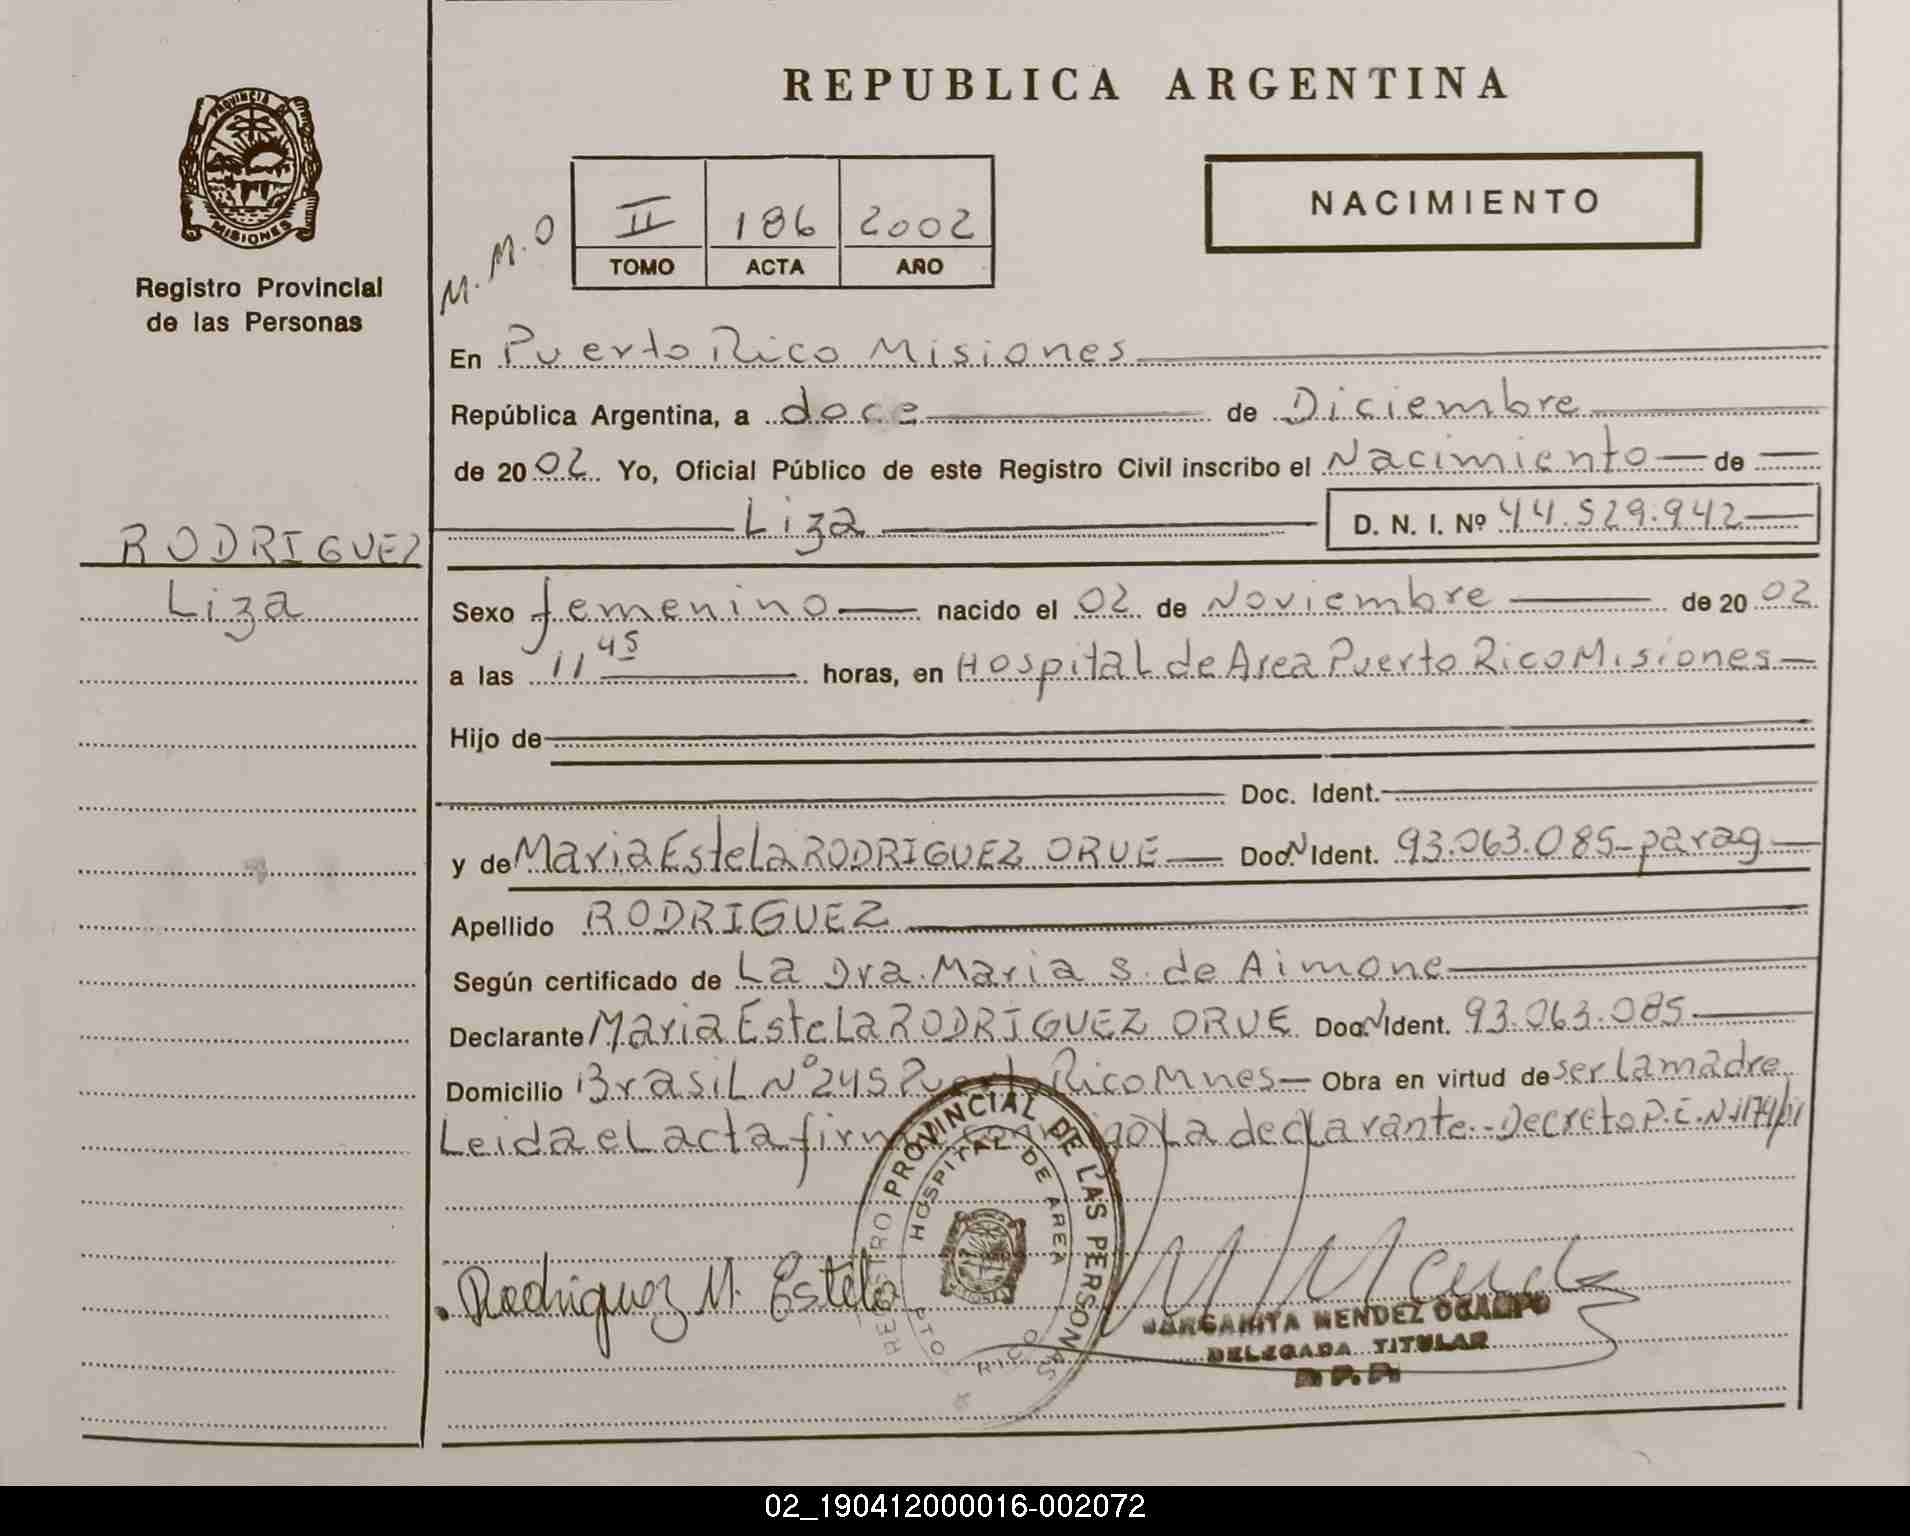 REPUBLICA ARGENTINA
PROVINCIA DE
MISIONES
Registro Provincial
de las Personas
M. M. O
II 186 2002
TOMO ACTA AÑO
NACIMIENTO
En Puerto Rico Misiones
República Argentina, a doce de Diciembre
de 2002 Yo, Oficial Público de este Registro Civil inscribo el Nacimiento de
Liza D. N. I. Nº 44.529.942
RODRIGUEZ
Liza
Sexo femenino nacido el 02 de Noviembre de 2002
a las 11 45 horas, en Hospital de Area Puerto Rico Misiones
Hijo de
Doc. Ident.
y de Maria Estela RODRIGUEZ ORUE Doc. N Ident. 93.063.085-parag
Apellido RODRIGUEZ
Según certificado de La Dra. Maria S. de Aimone
Declarante Maria Estela RODRIGUEZ ORUE Doc. N Ident. 93.063.085
Domicilio Brasil Nº 245 Puerto Rico Mnes Obra en virtud de ser la madre
Leida el acta firma conmigo la declarante.-Decreto P.E.N.
REGISTRO PROVINCIAL DE LAS PERSONAS
HOSPITAL DE AREA
PTO RICO
Rodriguez M. Estela
MARGARITA MENDEZ OCAMPO
DELEGADA TITULAR
R. P. P.
02_190412000016-002072